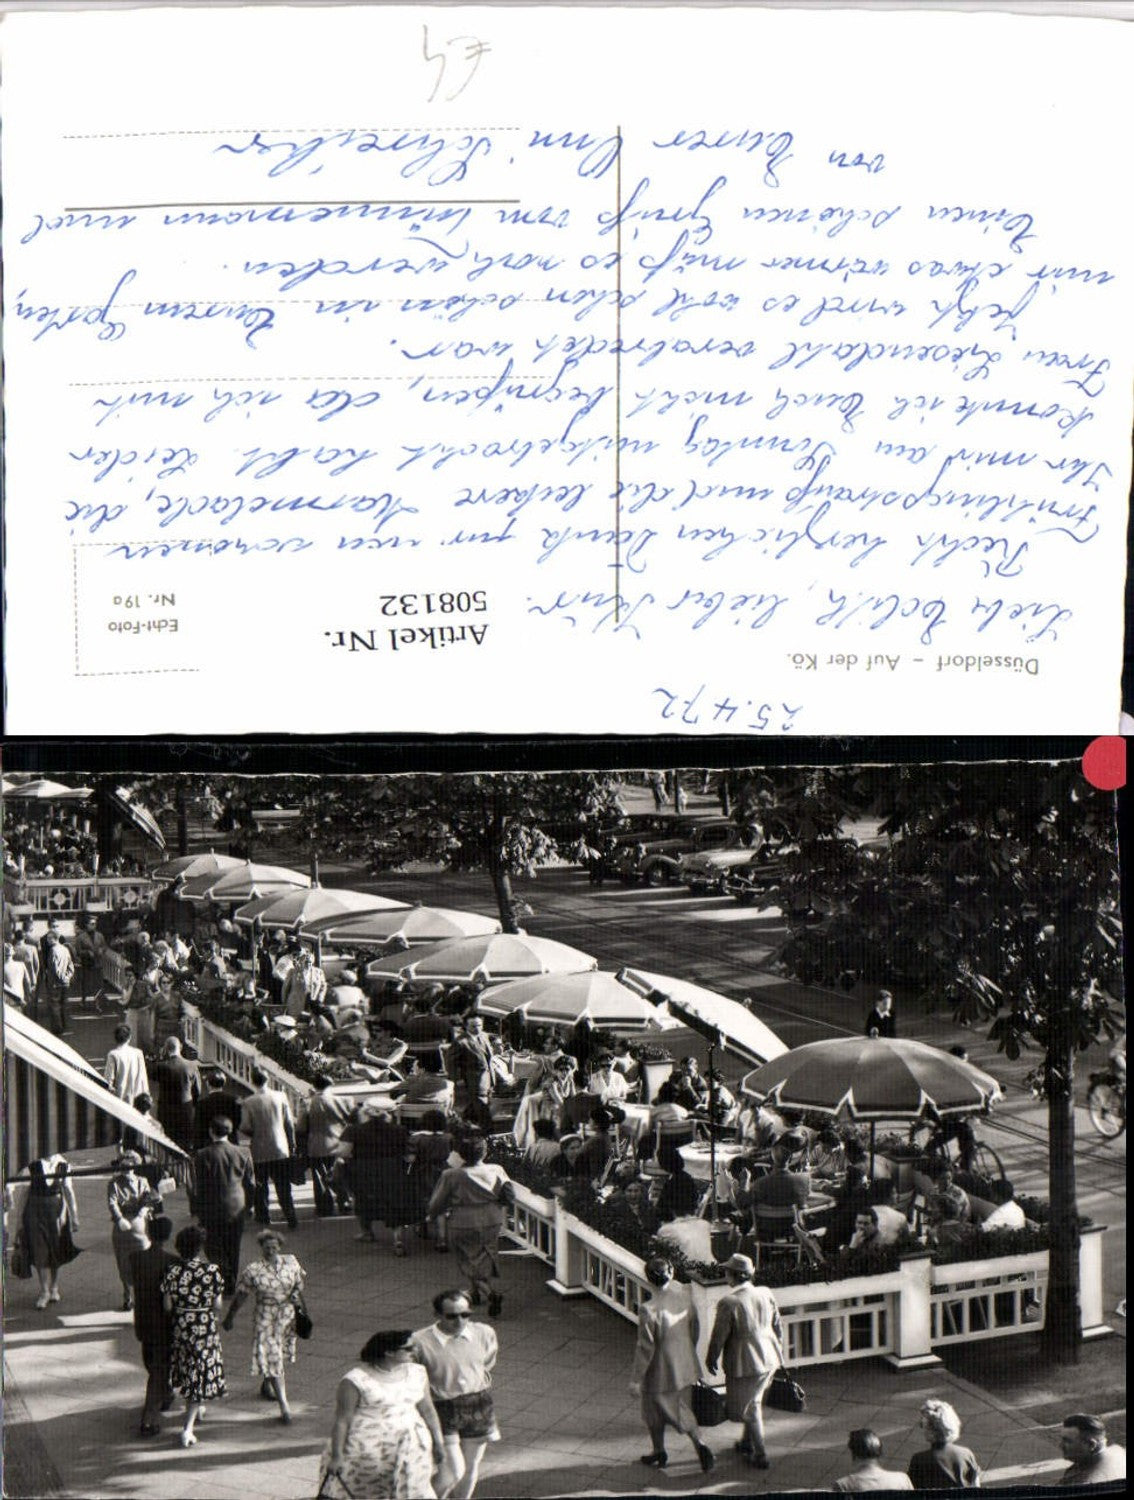 25.4.72
Düsseldorf – Auf der Kö.
Echt-Foto
Nr. 19a
Artikel Nr.
508132
Liebe Edith, lieber
Recht herzlichen Dank für den schönen
Frühlingsstrauß und die leckere Marmelade, die
Ihr mir am Sonntag mitgebracht habt. Leider
konnte ich Euch nicht begrüßen, da ich mit
Frau Liesendahl verabredet war.
Jetzt wird es wohl schon schön in Eurem Garten,
nur etwas wärmer muß es noch werden.
Einen schönen Gruß von und
von Eurer Omi Schreiber
€4